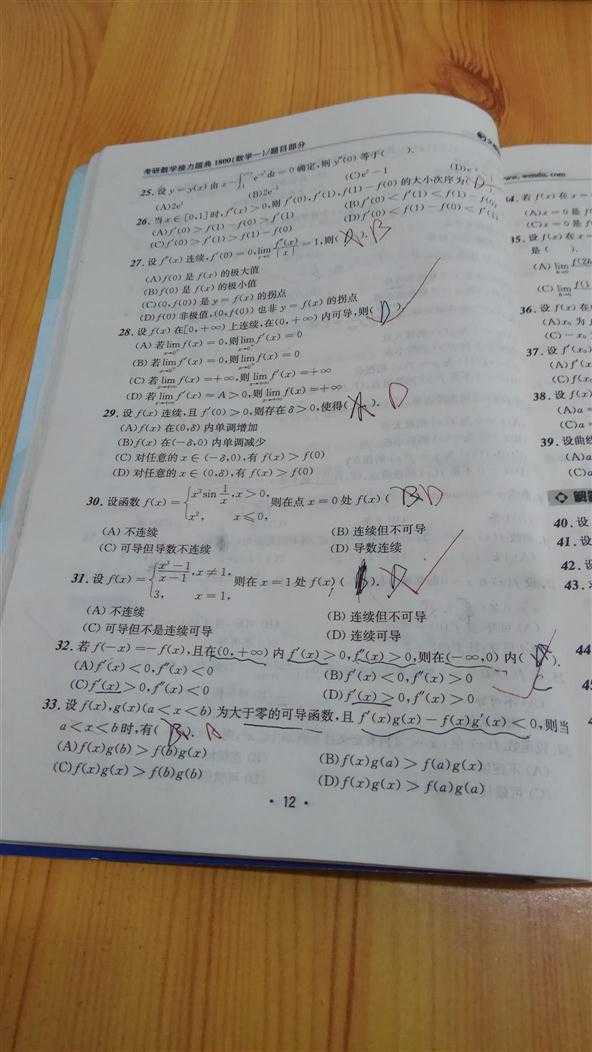 考研数学接力题典1800(数学一)/题目部分
25. 设 y=y(x) 由 x-∫₁^{x+y} e^{-t²}dt=0 确定,则 y″(0) 等于( ).
(A)2e² (B)2e⁻¹ (C)e²-1
26. 当 x∈[0,1]时,f″(x)>0,则 f′(0),f′(1),f(1)-f(0) 的大小次序为( D ).
(A)f′(0)>f(1)-f(0)>f′(1) (B)f′(0)<f′(1)<f(1)-f(0)
(C)f′(0)>f′(1)>f(1)-f(0) (D)f′(0)<f(1)-f(0)<f′(1)
27. 设 f″(x) 连续,f′(0)=0,lim_{x→0} f″(x)/|x|=1,则( A ). B
(A)f(0) 是 f(x) 的极大值
(B)f(0) 是 f(x) 的极小值
(C)(0,f(0)) 是 y=f(x) 的拐点
(D)f(0) 非极值,(0,f(0)) 也非 y=f(x) 的拐点
28. 设 f(x) 在[0,+∞) 上连续,在(0,+∞) 内可导,则( D ).
(A) 若lim_{x→0⁺} f(x)=0,则lim_{x→0⁺} f′(x)=0
(B) 若lim_{x→0⁺} f′(x)=0,则lim_{x→0⁺} f(x)=0
(C) 若lim_{x→+∞} f(x)=+∞,则lim_{x→+∞} f′(x)=+∞
(D) 若lim_{x→+∞} f′(x)=A>0,则lim_{x→+∞} f(x)=+∞
29. 设 f(x) 连续,且 f′(0)>0,则存在 δ>0,使得( A ). D
(A)f(x) 在(0,δ) 内单调增加
(B)f(x) 在(-δ,0) 内单调减少
(C) 对任意的 x∈(-δ,0),有 f(x)>f(0)
(D) 对任意的 x∈(0,δ),有 f(x)>f(0)
30. 设函数 f(x)={x²sin 1/x, x>0, x², x≤0, 则在点 x=0 处 f(x) ( B D
(A) 不连续 (B) 连续但不可导
(C) 可导但导数不连续 (D) 导数连续
31. 设 f(x)={(x²-1)/(x-1), x≠1, 3, x=1, 则在 x=1 处 f(x) ( B ). A
(A) 不连续 (B) 连续但不可导
(C) 可导但不是连续可导 (D) 连续可导
32. 若 f(-x)=-f(x),且在(0,+∞) 内 f′(x)>0,f″(x)>0,则在(-∞,0) 内( ). C
(A)f′(x)<0,f″(x)<0 (B)f′(x)<0,f″(x)>0
(C)f′(x)>0,f″(x)<0 (D)f′(x)>0,f″(x)>0
33. 设 f(x),g(x)(a<x<b) 为大于零的可导函数,且 f′(x)g(x)-f(x)g′(x)<0,则当
a<x<b 时,有( B ). A
(A)f(x)g(b)>f(b)g(x) (B)f(x)g(a)>f(a)g(x)
(C)f(x)g(x)>f(b)g(b) (D)f(x)g(x)>f(a)g(a)
· 12 ·
www. wendu. com
34. 若 f(x) 在 x=
(A)x=0 是 f
(C)x=0 是 f
35. 设 f(x) 在 x=
是( ).
(A) lim f(2h
(C) lim f(
36. 设 f(x) 在
(A)x₀ 为
(C)-x₀
37. 设 f′(x₀)
(A)f′(x
(C)f(x₀
38. 设 f(x)
(A)a=
(C)a=
39. 设曲线
(A)a
(C)a
40. 设
41. 设
42. 设
43.
44
45